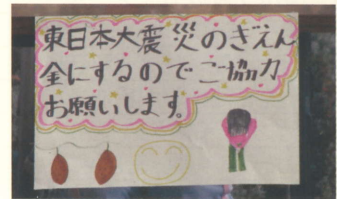 東日本大震災のぎえん
金にするのでご協力
お願いします。